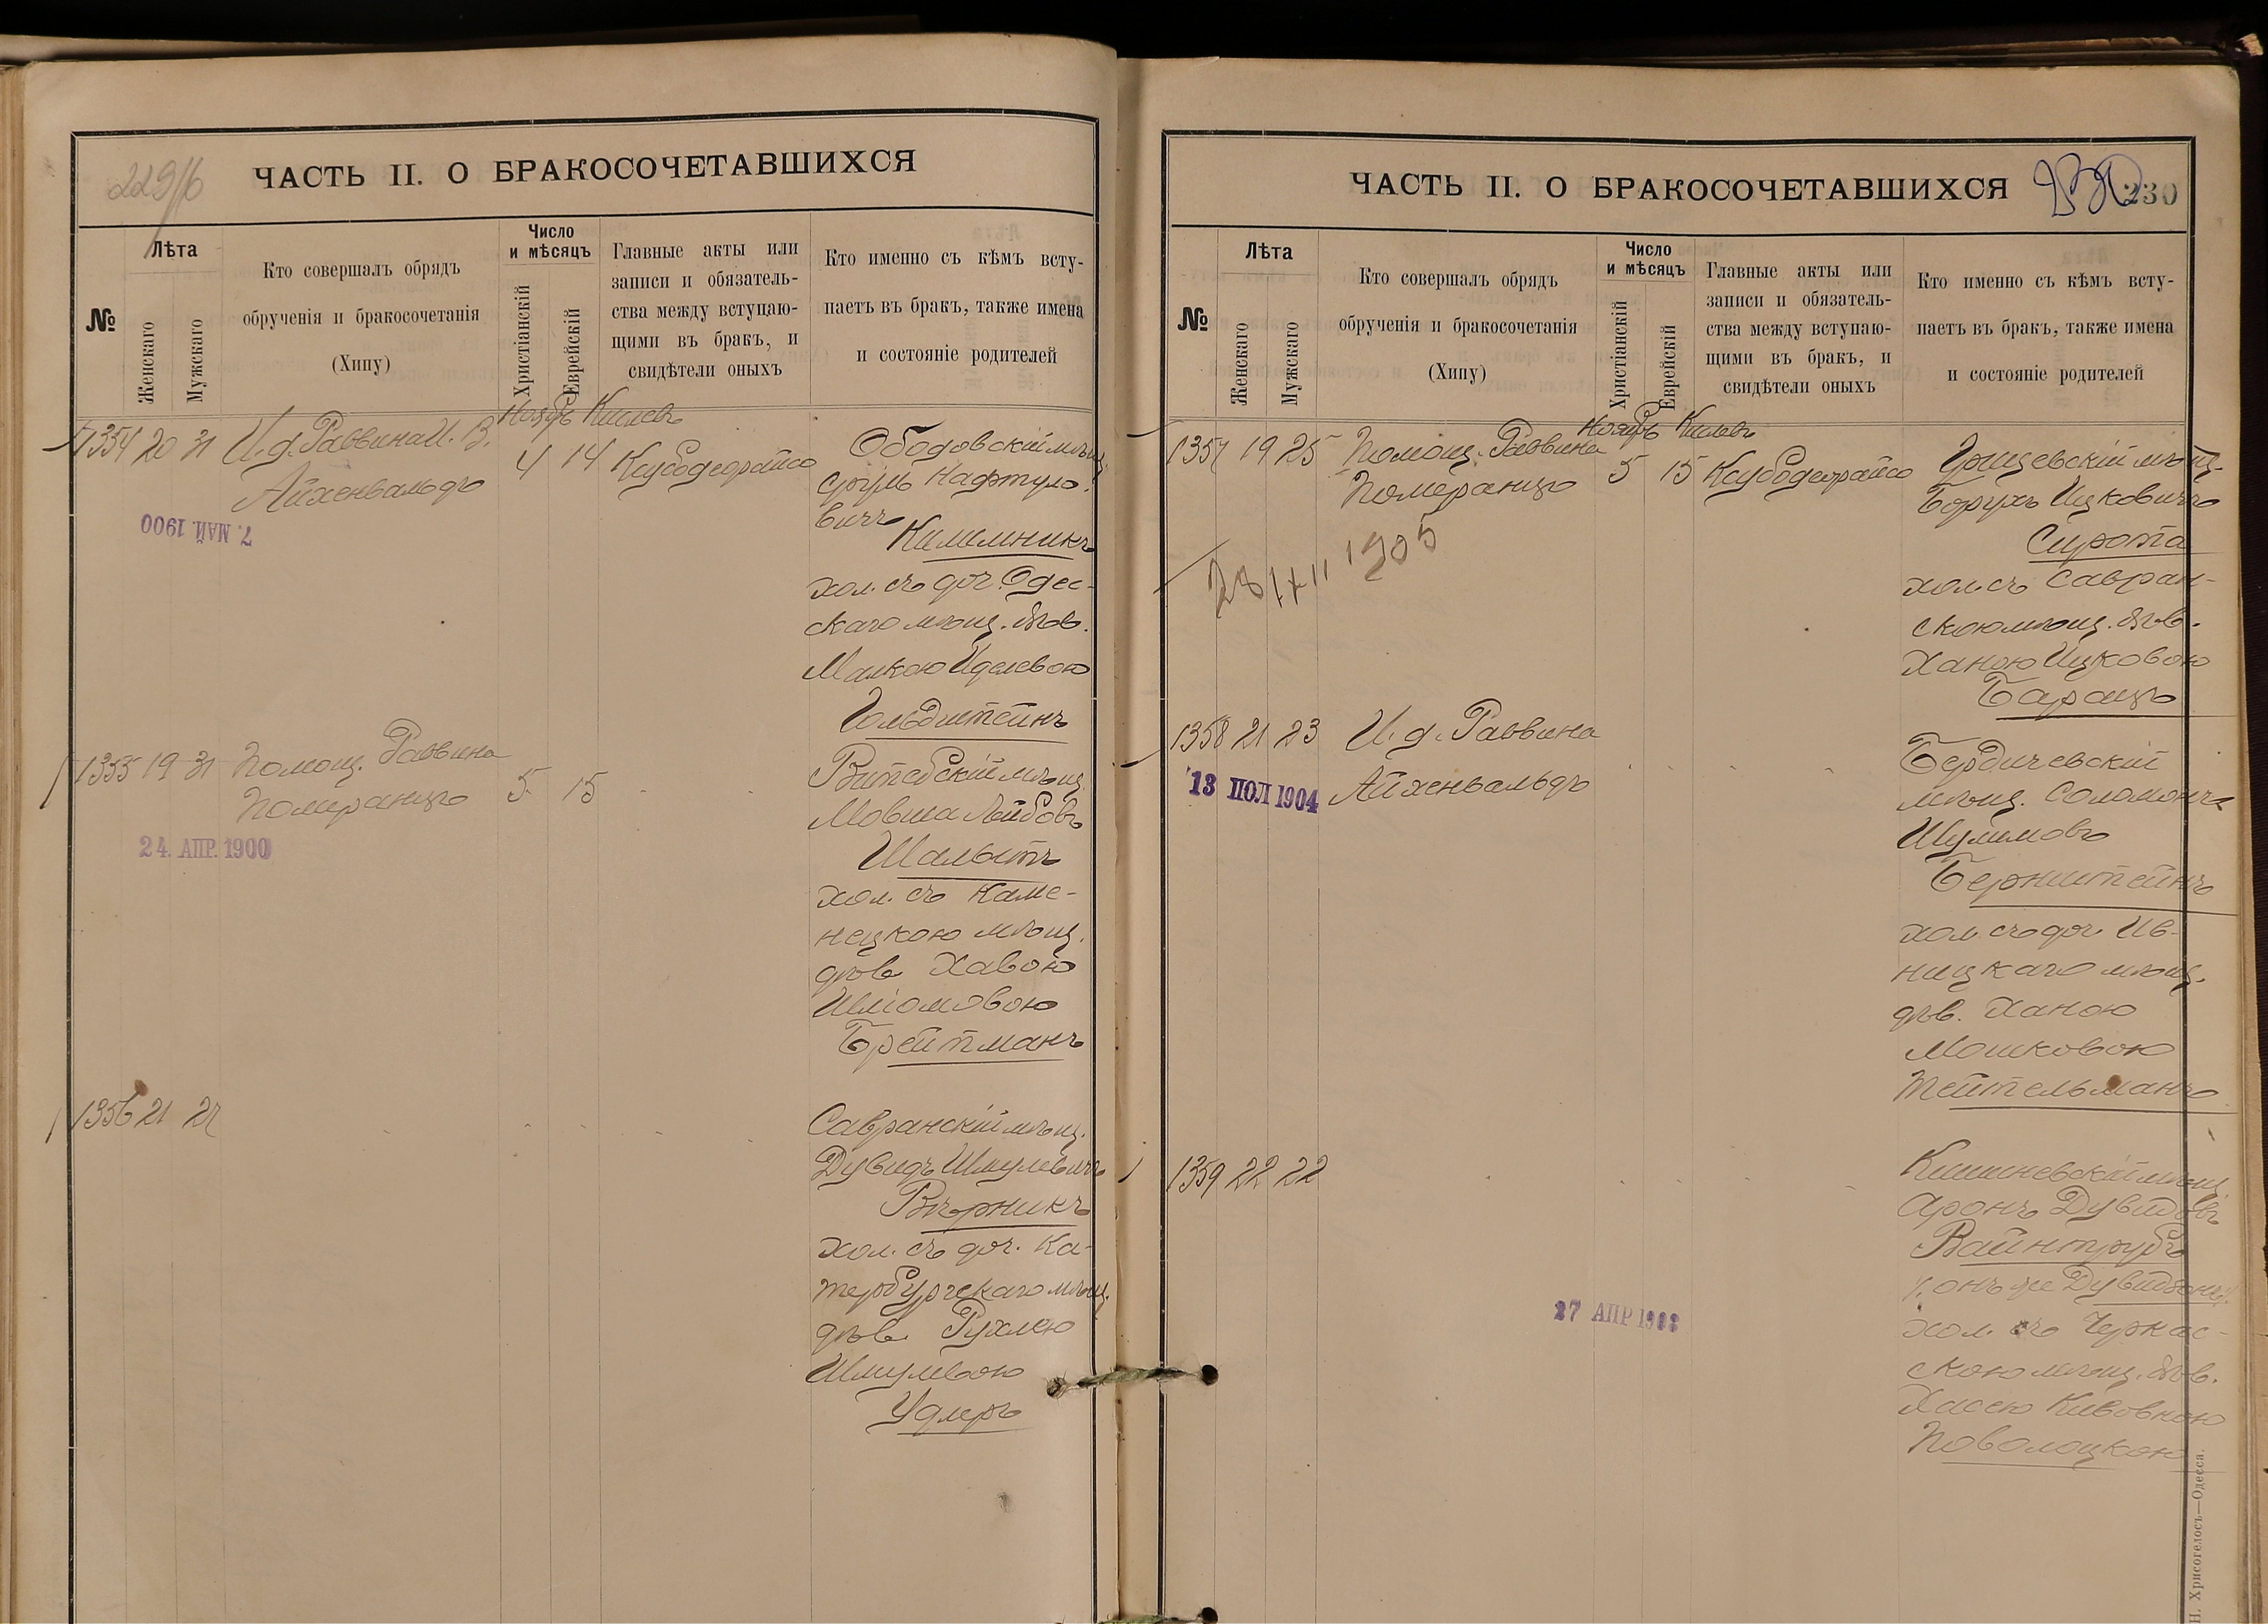 229/б
ЧАСТЬ II. О БРАКОСОЧЕТАВШИХСЯ
№
Лѣта
Женскаго
Мужскаго
Кто совершалъ обрядъ
обрученія и бракосочетанія
(Хипу)
Число
и мѣсяцъ
Христіанскій
Еврейскій
Главные акты или
записи и обязатель-
ства между вступаю-
щими въ бракъ, и
свидѣтели оныхъ
Кто именно съ кѣмъ всту-
паетъ въ бракъ, также имена
и состояніе родителей
Ноябрь Кислевъ
1354 20 31 И. д. Раввина И. В.
Айхенвальдъ
4 14 Ксубодеорайсо
7. МАЙ. 1900
Ободовскій мѣщ.
Сруль Нафтуло-
вичъ
Килимникъ
хол. съ доч. Одес-
скаго мѣщ. дѣв.
Малкою Иделевою
Гольдштейнъ
1355 19 31 Помощ. Раввина
Померанцъ
5 15
24. АПР. 1900
Витебскій мѣщ.
Мовша Лейбовъ
Шалытъ
хол. съ Каме-
нецкою мѣщ.
дѣв. Хавою
Шліомовою
Брейтманъ
1356 21 27
Савранскій мѣщ.
Дувидъ Шмулевичъ
Вѣрникъ
хол. съ доч. Ка-
тербургскаго мѣщ.
дѣв. Рухлею
Шмулевою
Удлеръ
ЧАСТЬ II. О БРАКОСОЧЕТАВШИХСЯ
230
№
Лѣта
Женскаго
Мужскаго
Кто совершалъ обрядъ
обрученія и бракосочетанія
(Хипу)
Число
и мѣсяцъ
Христіанскій
Еврейскій
Главные акты или
записи и обязатель-
ства между вступаю-
щими въ бракъ, и
свидѣтели оныхъ
Кто именно съ кѣмъ всту-
паетъ въ бракъ, также имена
и состояніе родителей
Ноябрь Кислевъ
1357 19 25 Помощ. Раввина
Померанцъ
5 15 Ксубодеорайсо
1905
Грицевскій мѣщ.
Борухъ Ицковичъ
Сирота
хол. съ Савран-
скою мѣщ. дѣв.
Ханою Ицковою
Баранъ
1358 21 23 И. д. Раввина
Айхенвальдъ
13 ІЮЛ 1904
Бердичевскій
мѣщ. Соломонъ
Шулимовъ
Бернштейнъ
хол. съ доч. Ив-
ницкаго мѣщ.
дѣв. Ханою
Мошковою
Тейтельманъ
1359 22 22
27 АПР
Кишиневскій мѣщ.
Аронъ Дувидовъ
Вайнтрубъ
онъ же Дувидзонъ
хол. съ Черкас-
скою мѣщ. дѣв.
Хасею Кивовною
Поволоцкою
Н. Хрисогелосъ—Одесса.